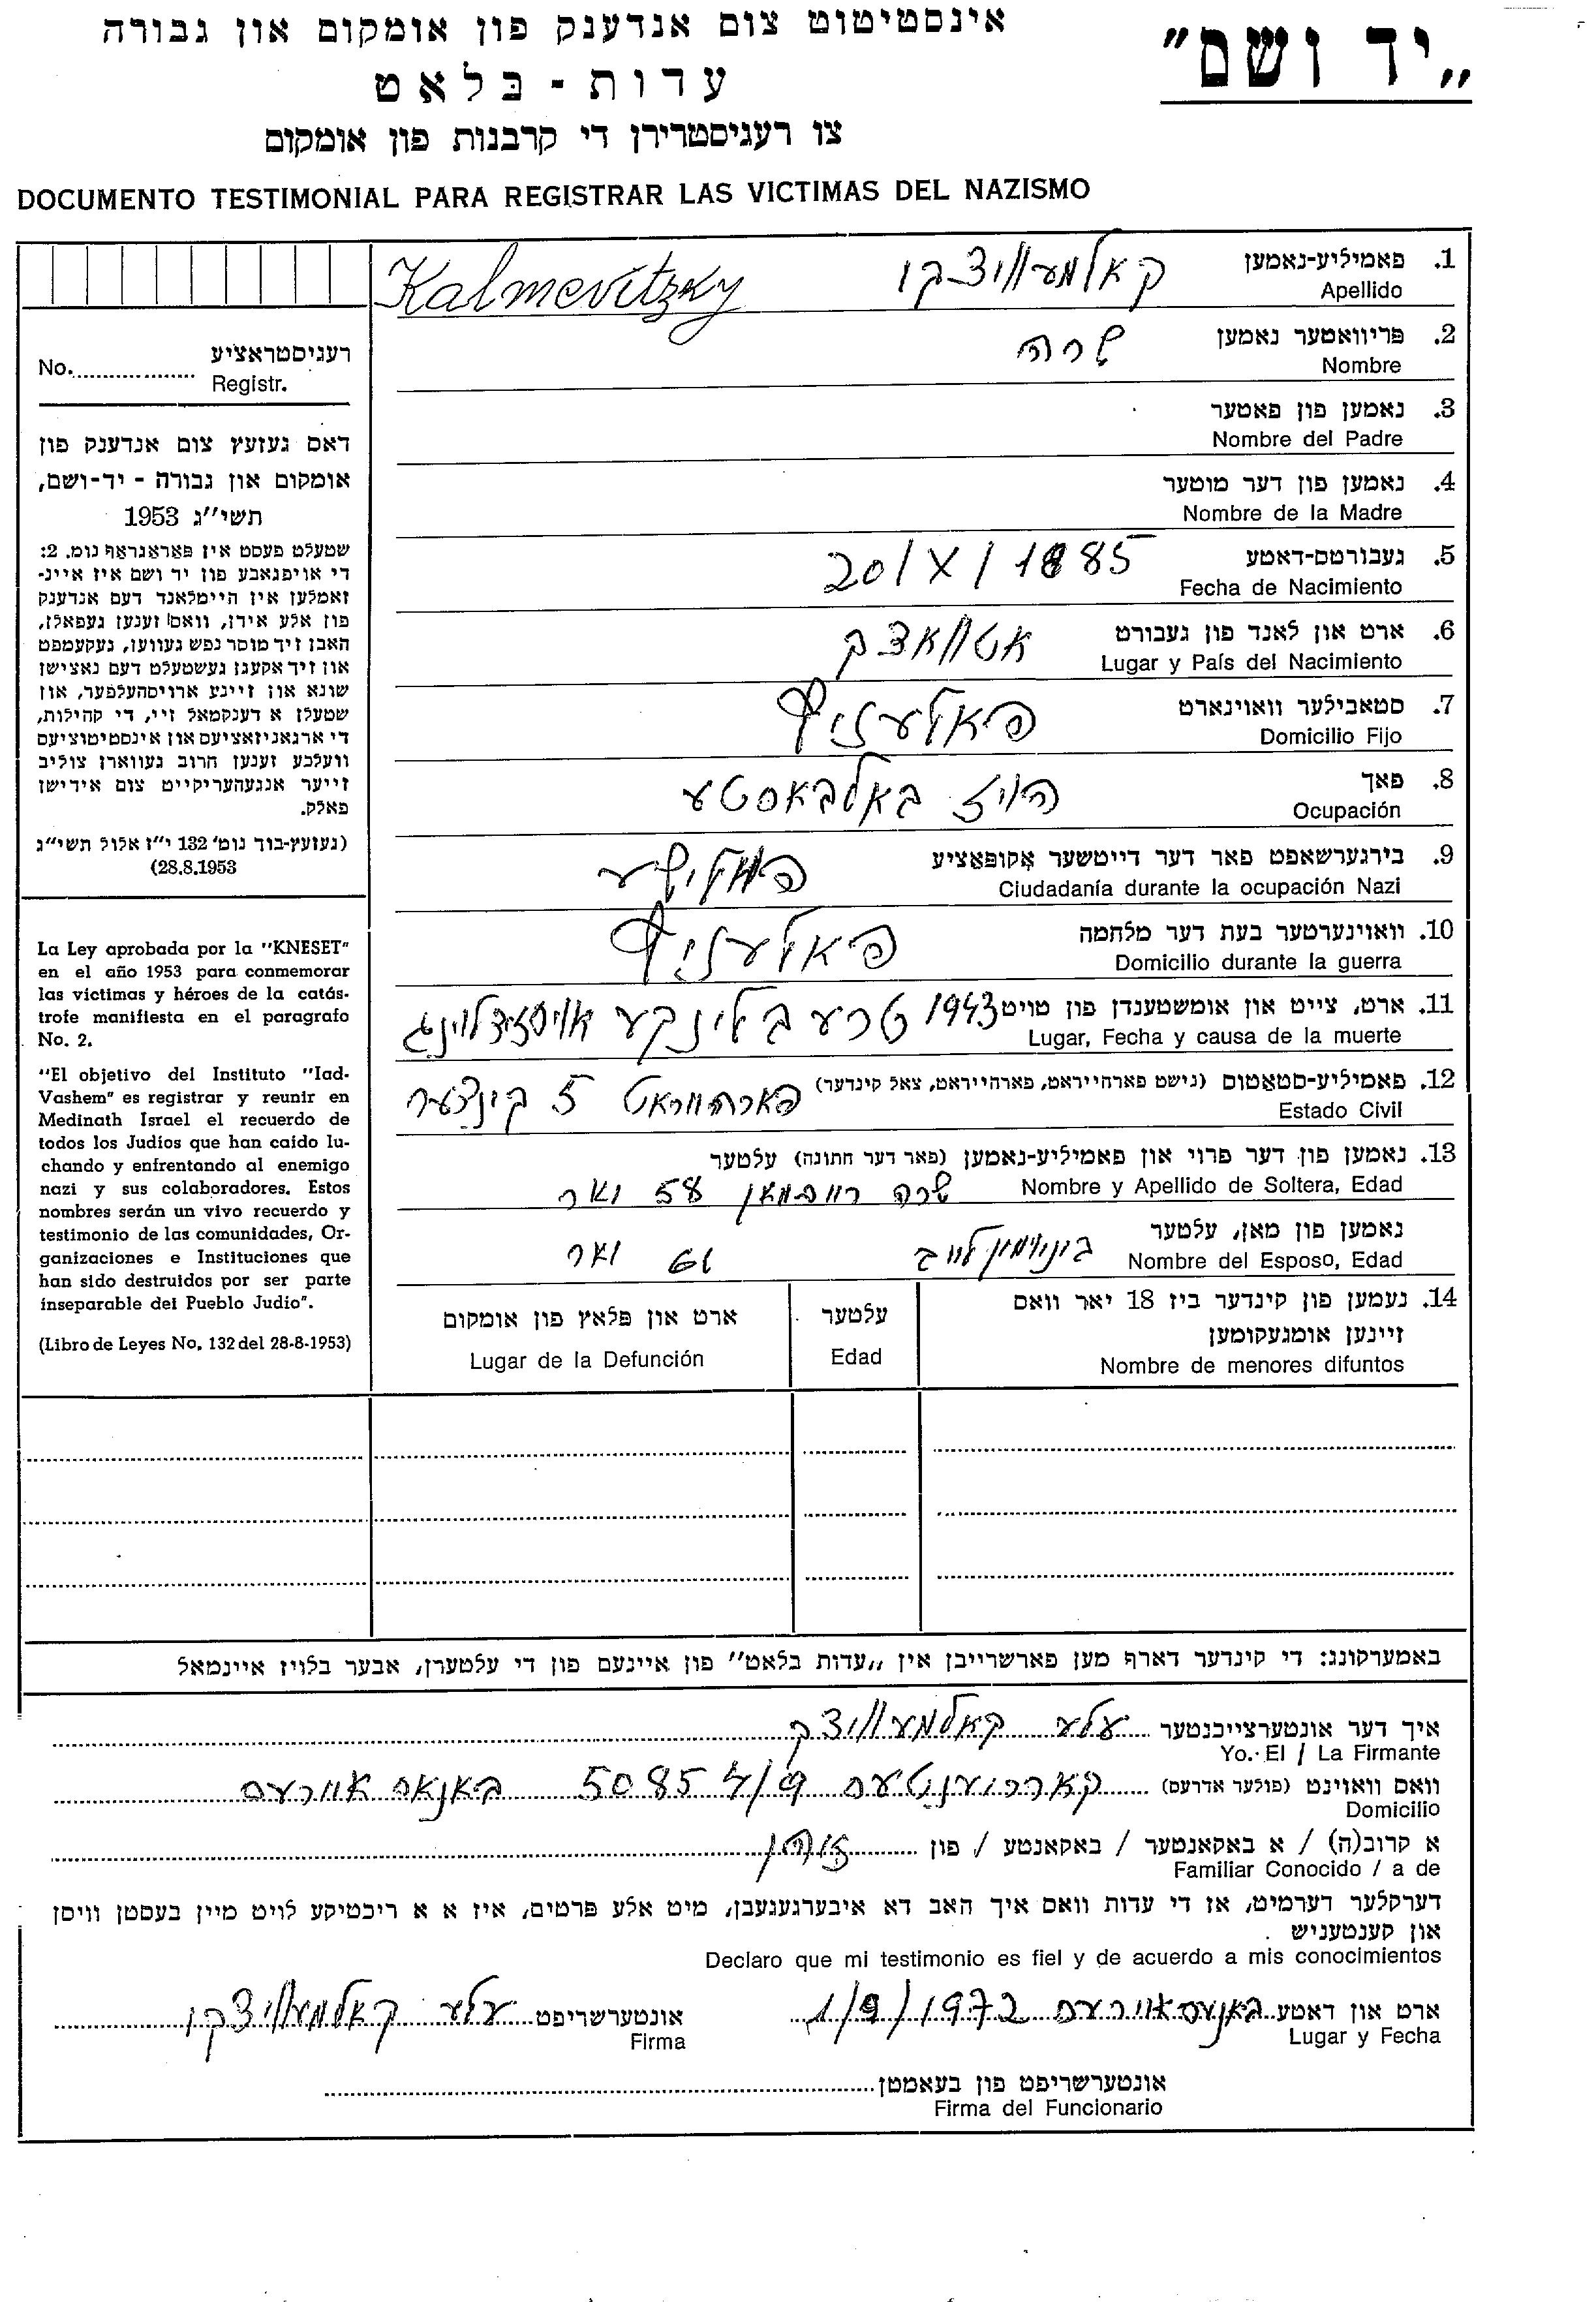 „יד ושם"
אינסטיטוט צום אנדענק פון אומקום און גבורה
עדות - בלאט
צו רעגיסטרירן די קרבנות פון אומקום
DOCUMENTO TESTIMONIAL PARA REGISTRAR LAS VICTIMAS DEL NAZISMO
1. פאמיליע-נאמען קאלמעוויצקי Kalmevitzky
Apellido
2. פריוואטער נאמען שרה
Nombre
3. נאמען פון פאטער
Nombre del Padre
4. נאמען פון דער מוטער
Nombre de la Madre
5. געבורטס-דאטע 20/X/1885
Fecha de Nacimiento
6. ארט און לאנד פון געבורט אטוואצק
Lugar y País del Nacimiento
7. סטאבילער וואוינארט פאלעניץ
Domicilio Fijo
8. פאך הויז באלבאסטע
Ocupación
9. בירגערשאפט פאר דער דייטשער אקופאציע פוילישע
Ciudadanía durante la ocupación Nazi
10. וואוינערטער בעת דער מלחמה פאלעניץ
Domicilio durante la guerra
11. ארט, צייט און אומשטענדן פון טויט 1943 טרעבלינקע אויסזידלונג
Lugar, Fecha y causa de la muerte
12. פאמיליע-סטאטוס (נישט פארהייראט, פארהייראט, צאל קינדער) פארהייראט 5 קינדער
Estado Civil
13. נאמען פון דער פרוי און פאמיליע-נאמען (פאר דער חתונה) עלטער
Nombre y Apellido de Soltera, Edad שרה 58 יאר
נאמען פון מאן, עלטער
Nombre del Esposo, Edad בונימין לייב 61 יאר
14. נעמען פון קינדער ביז 18 יאר וואס
זיינען אומגעקומען
Nombre de menores difuntos
עלטער
Edad
ארט און פלאץ פון אומקום
Lugar de la Defunción
רעגיסטראציע
No. Registr.
דאס געזעץ צום אנדענק פון
אומקום און גבורה - יד-ושם,
תשי"ג 1953
שטעלט פעסט אין פאראגראף נומ. 2:
די אויפגאבע פון יד ושם איז איינ-
זאמלען אין היימלאנד דעם אנדענק
פון אלע אידן, וואס זענען געפאלן,
האבן זיך מוסר נפש געווען, געקעמפט
און זיך אקעגן געשטעלט דעם נאצישן
שונא און זיינע ארויסהעלפער, און
שטעלן א דענקמאל זיי, די קהילות,
די ארגאניזאציעס און אינסטיטוציעס
וועלכע זענען חרוב געווארן צוליב
זייער אנגעהעריקייט צום אידישן
פאלק.
(געזעץ-בוך נומ' 132 י"ז אלול תשי"ג
28.8.1953)
La Ley aprobada por la "KNESET"
en el año 1953 para conmemorar
las victimas y héroes de la catás-
trofe manifiesta en el paragrafo
No. 2.
"El objetivo del Instituto "Iad-
Vashem" es registrar y reunir en
Medinath Israel el recuerdo de
todos los Judíos que han caído lu-
chando y enfrentando al enemigo
nazi y sus colaboradores. Estos
nombres serán un vivo recuerdo y
testimonio de las comunidades, Or-
ganizaciones e Instituciones que
han sido destruidos por ser parte
inseparable del Pueblo Judio".
(Libro de Leyes No. 132 del 28-8-1953)
באמערקונג: די קינדער דארף מען פארשרייבן אין „עדות בלאט" פון איינעם פון די עלטערן, אבער בלויז איינמאל
איך דער אונטערצייכנטער עלע קאלמעוויצקי
Yo. El / La Firmante
וואס וואוינט (פולער אדרעס) קארריענטעס 5085 4/9 באנאס איירעס
Domicilio
א קרוב(ה) / א באקאנטער / באקאנטע / פון זוהן
Familiar Conocido / a de
דערקלער דערמיט, אז די עדות וואס איך האב דא איבערגעגעבן, מיט אלע פרטים, איז א א ריכטיקע לויט מיין בעסטן וויסן
און קענטעניש.
Declaro que mi testimonio es fiel y de acuerdo a mis conocimientos
ארט און דאטע באנאס איירעס 1/9/1972 אונטערשריפט עלע קאלמעוויצקי
Lugar y Fecha Firma
אונטערשריפט פון בעאמטן
Firma del Funcionario